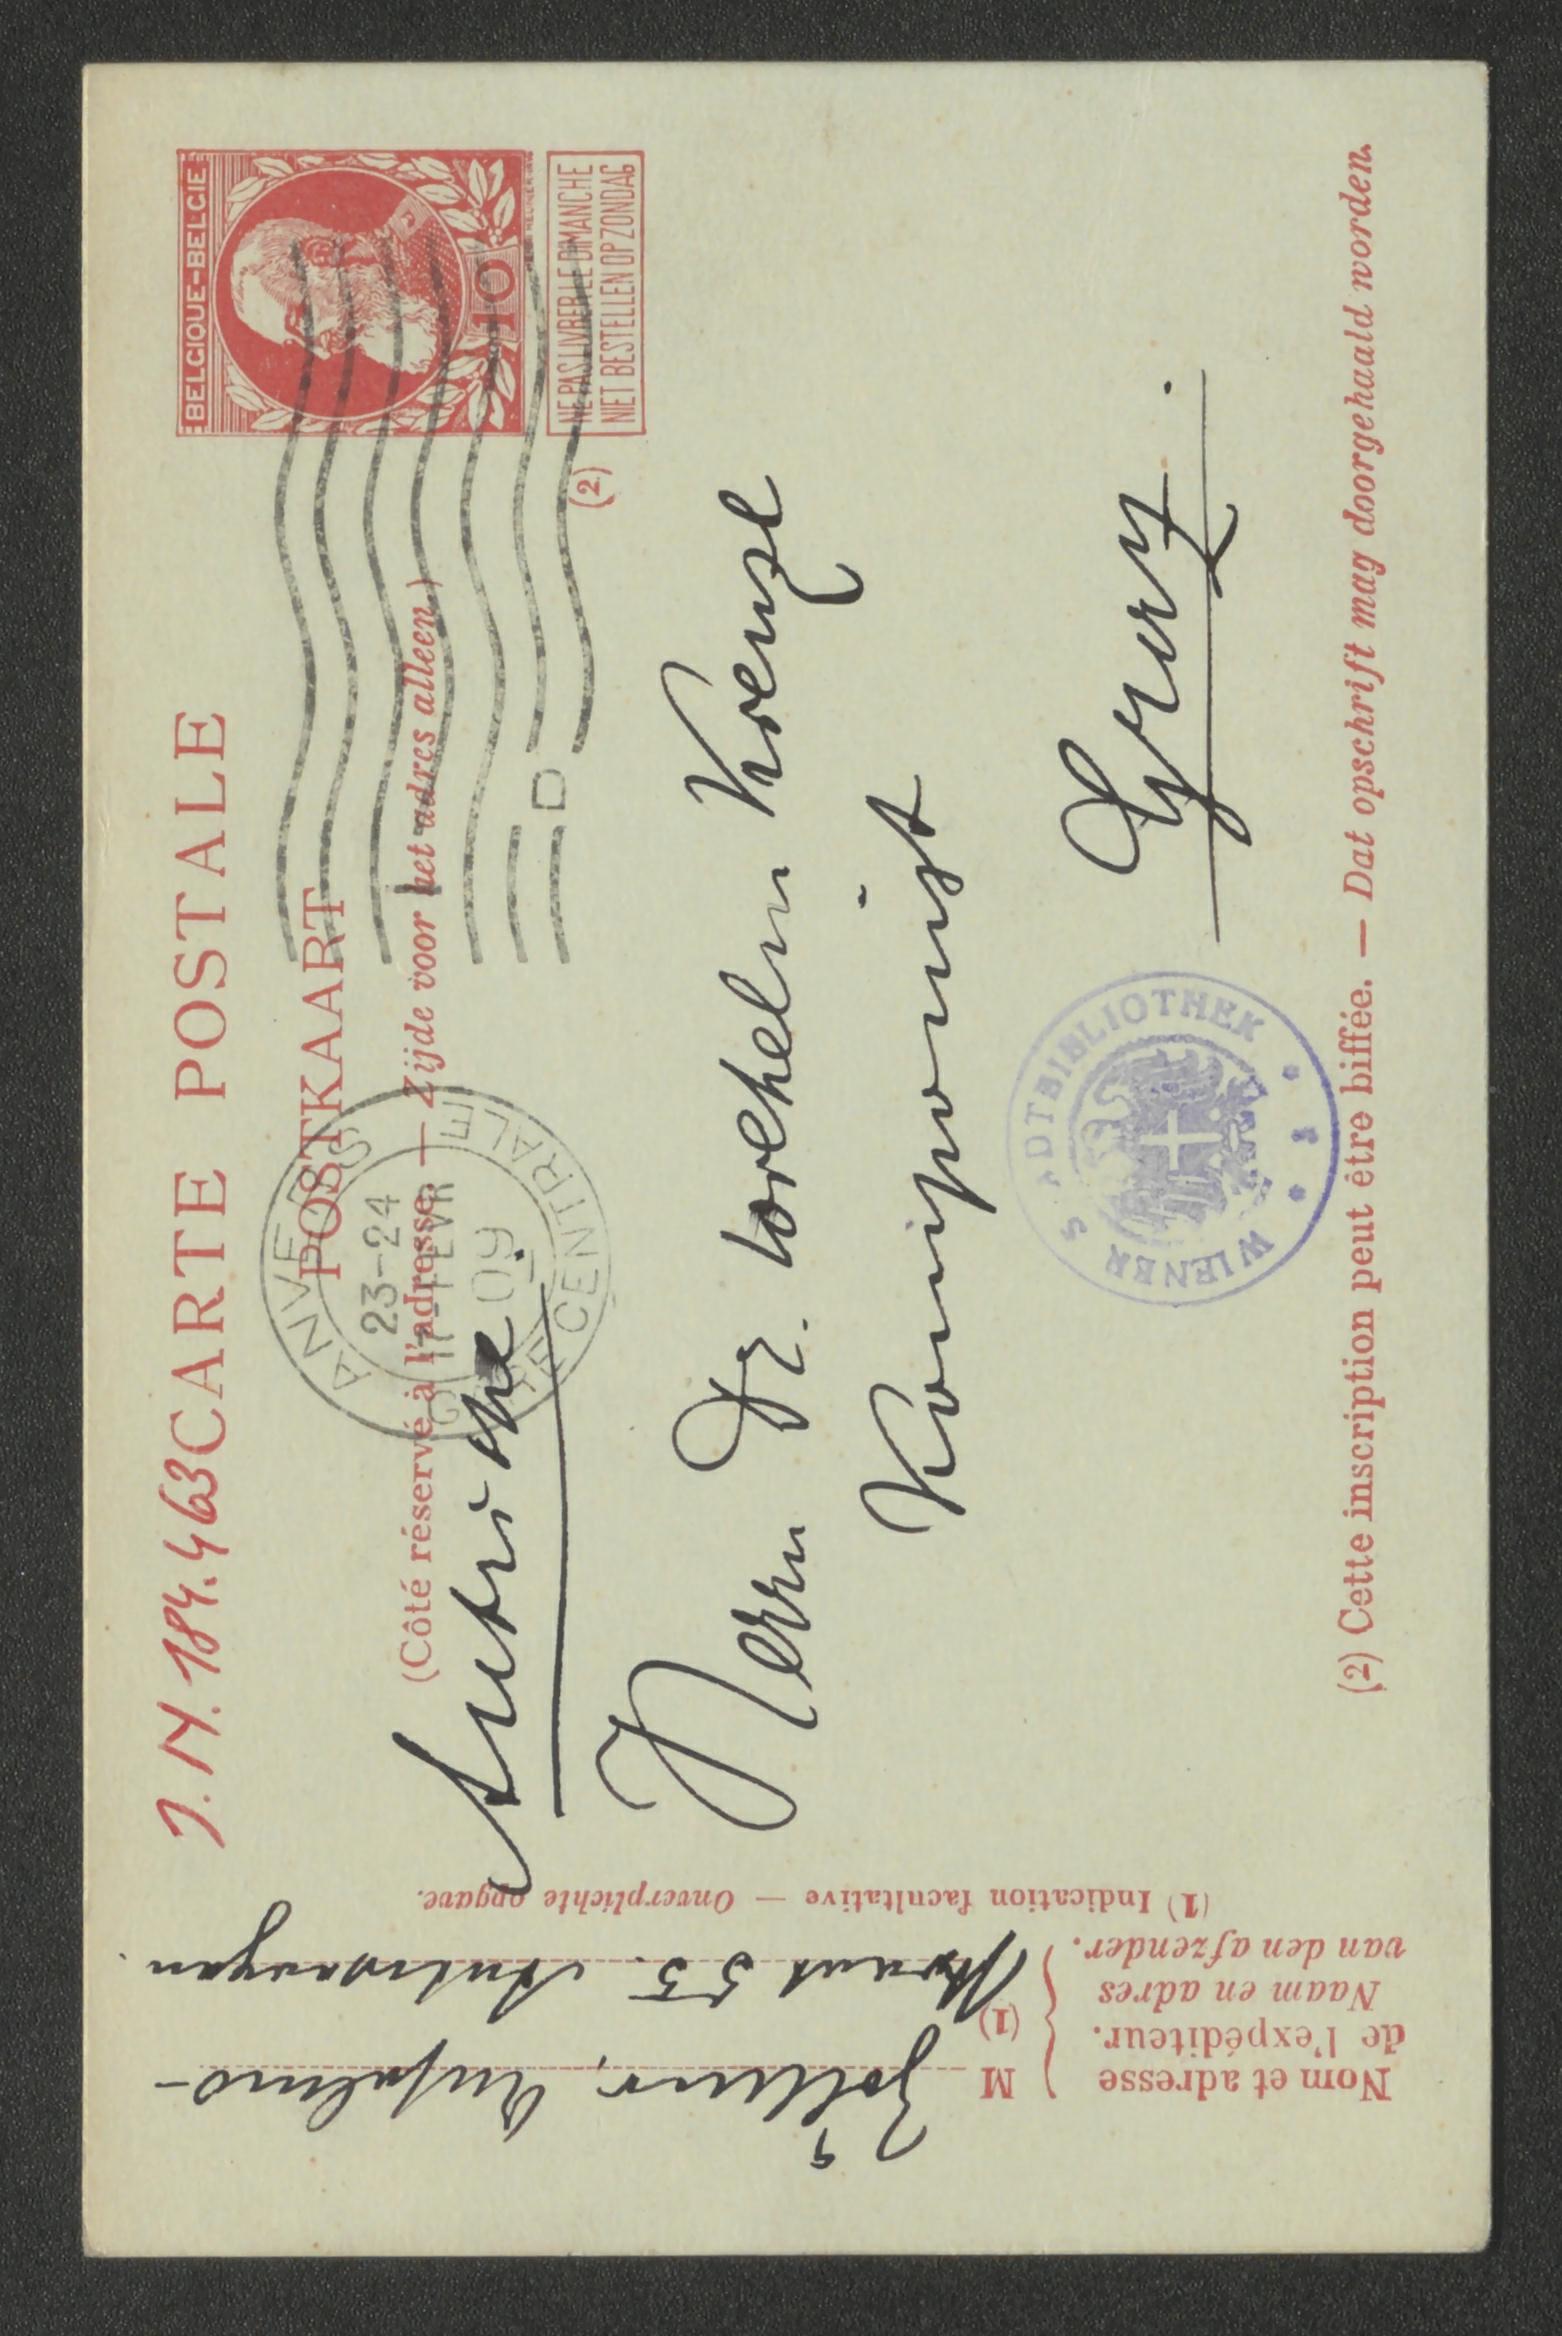 J. N. 184.463
CARTE POSTALE
POSTKAART
(Côté réservé à l'adresse. — Zijde voor het adres alleen.)
BELGIQUE-BELGIE
10
NE PAS LIVRER LE DIMANCHE
NIET BESTELLEN OP ZONDAG
(2)
ANVERS
23-24
FEVR
09
CENTRALE
D
Autriche.
Herrn Dr. Wilhelm Kienzl
Komponist
Graz.
WIENER STADTBIBLIOTHEK
(2) Cette inscription peut être biffée. — Dat opschrift mag doorgehaald worden.
Nom et adresse
de l'expéditeur.
Naam en adres
van den afzender.
M
(1)
Zöllner,
55. Antwerpen.
(1) Indication facultative — Onverplichte opgave.